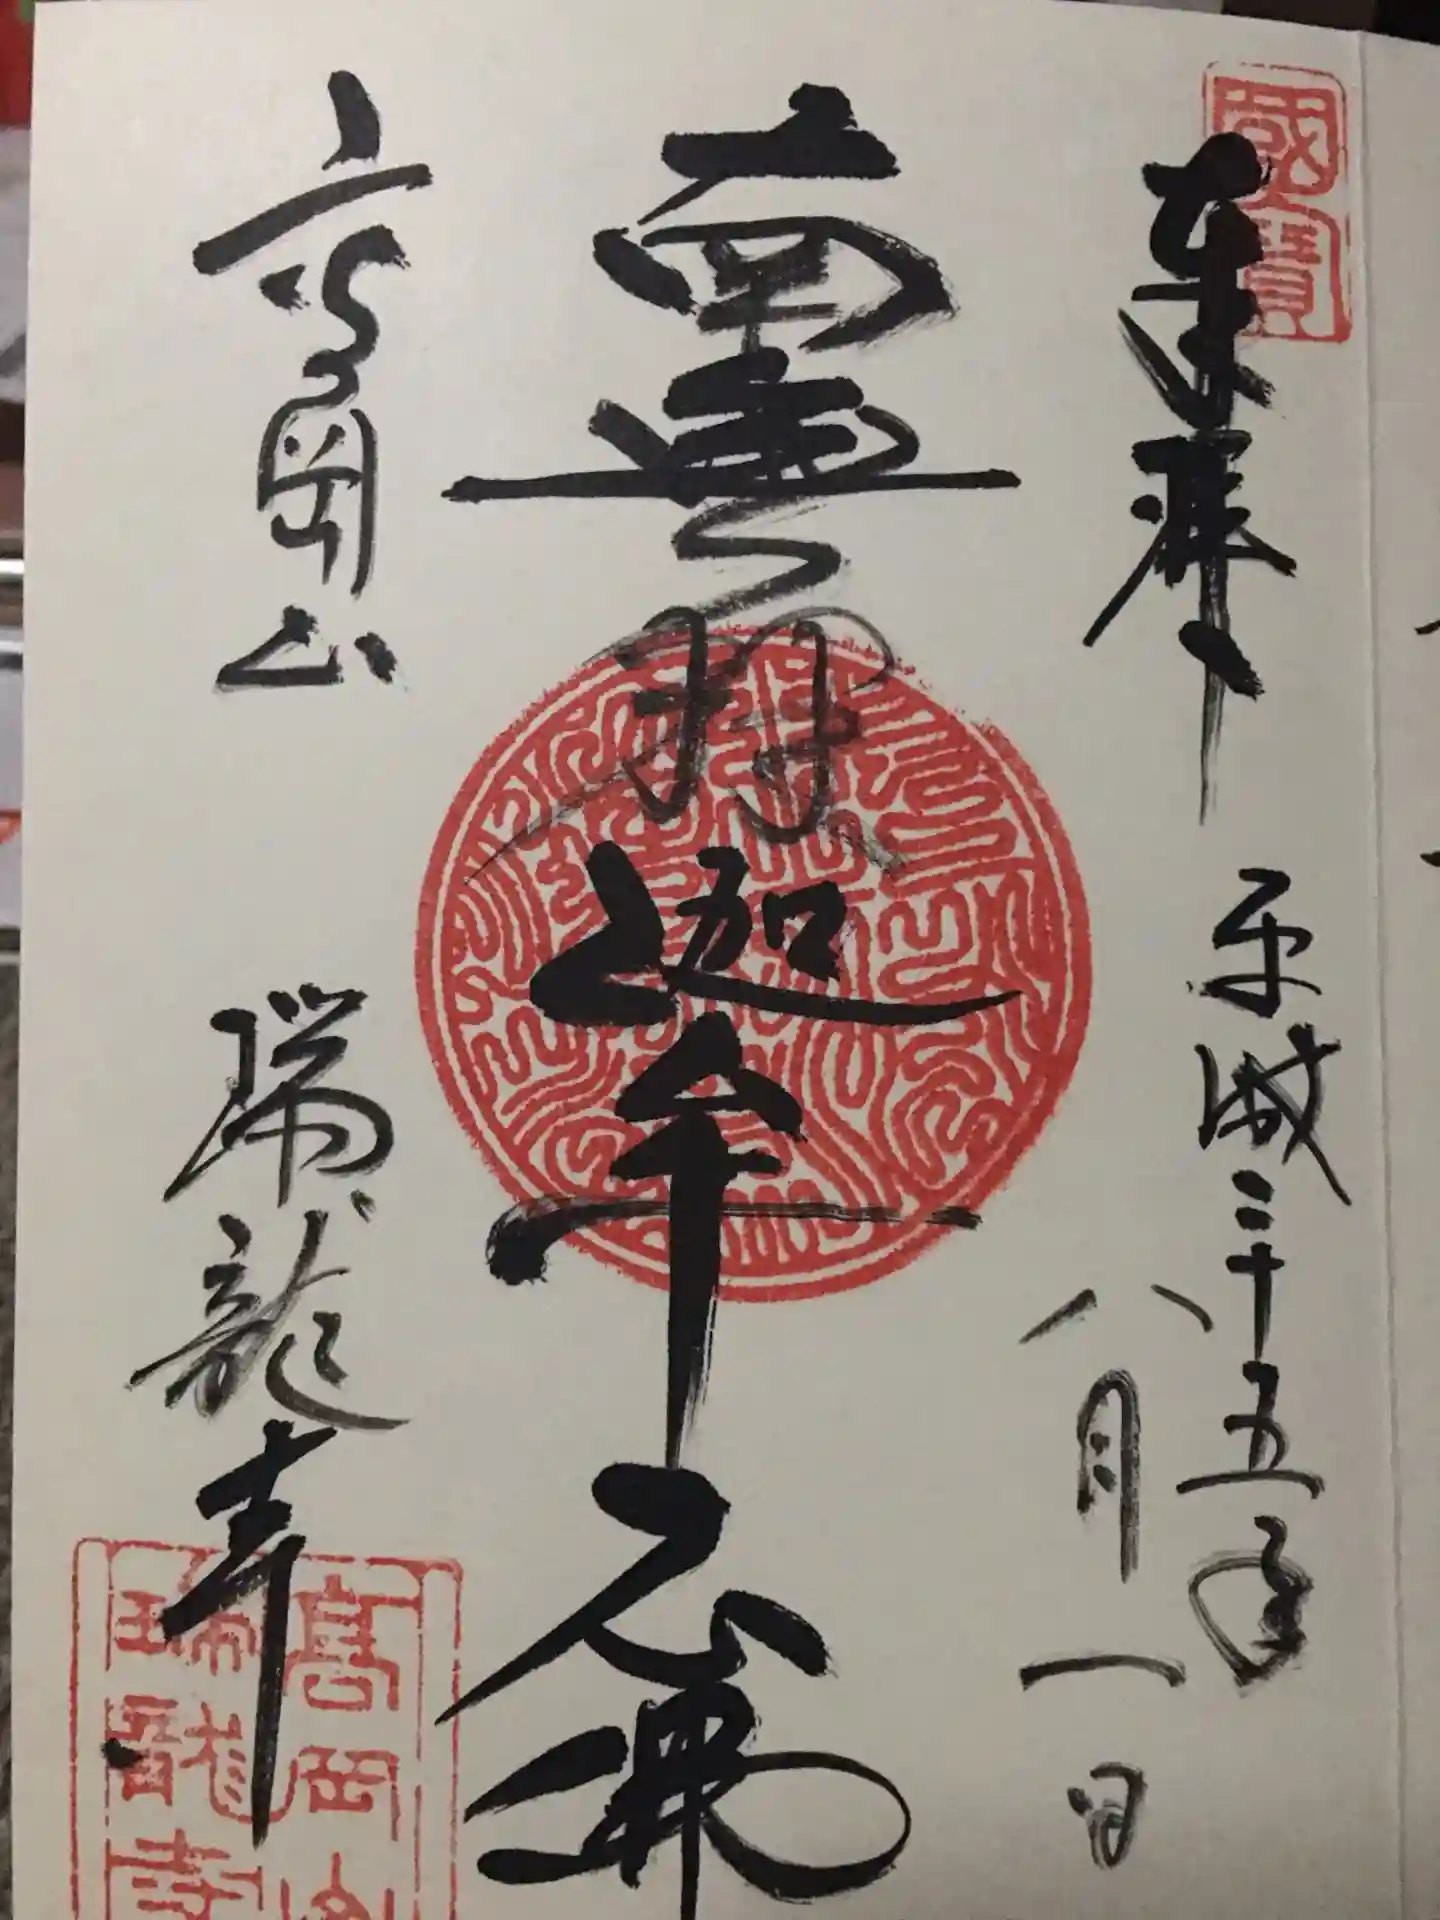 國寳
奉拜
平成二十五年
八月一日
南無釋迦牟尼佛
高岡山
瑞龍寺
高岡山
瑞龍寺